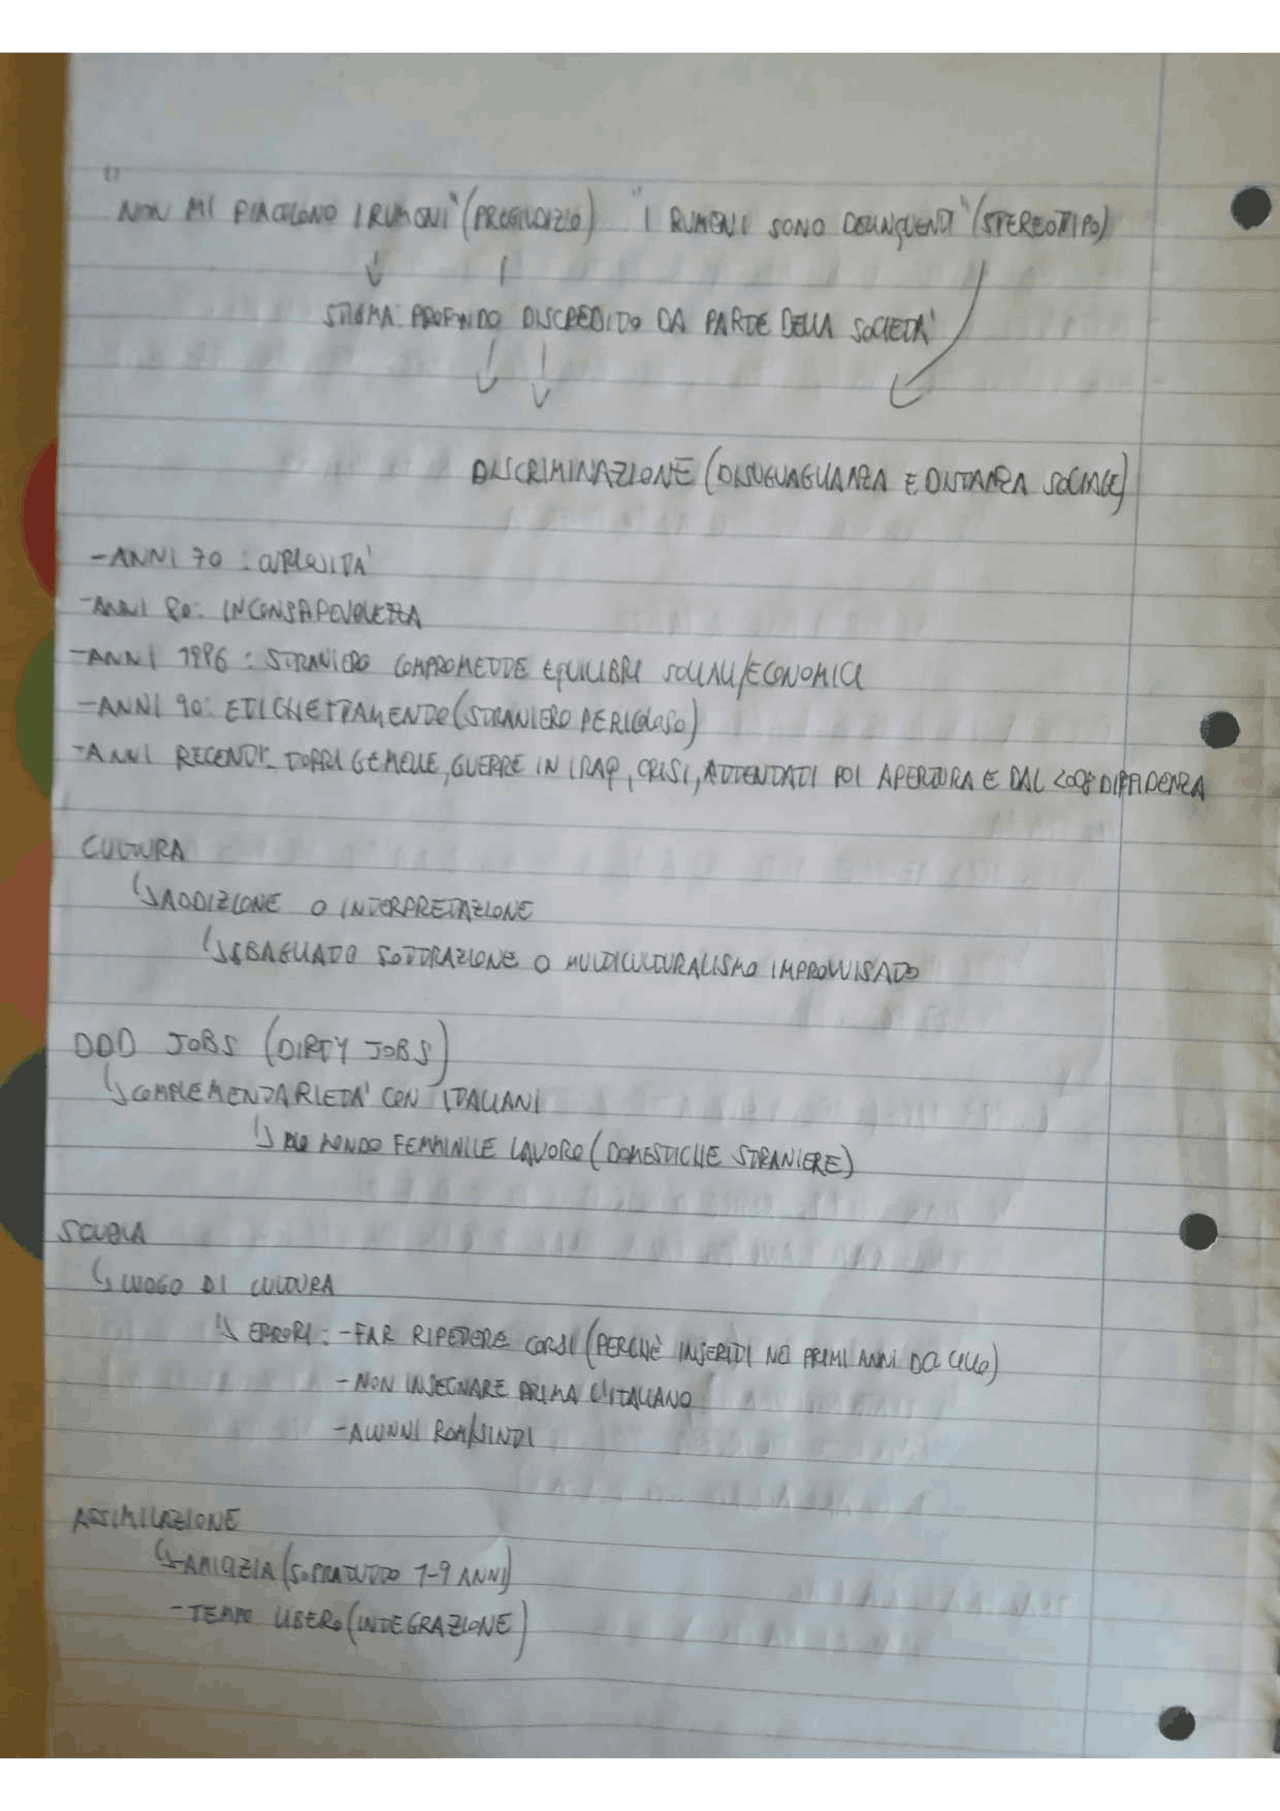 "NON MI PIACCIONO I RUMENI" (PREGIUDIZIO) "I RUMENI SONO DELINQUENTI" (STEREOTIPO)
STIGMA: PROFONDO DISCREDITO DA PARTE DELLA SOCIETA'
DISCRIMINAZIONE (DISUGUAGLIANZA E DISTANZA SOCIALE)
-ANNI 70: CURIOSITA'
-ANNI 80: INCONSAPEVOLEZZA
-ANNI 1986: STRANIERO COMPROMETTE EQUILIBRI SOCIALI/ECONOMICI
-ANNI 90: ETICHETTAMENTO (STRANIERO PERICOLOSO)
-ANNI RECENTI: TORRI GEMELLE, GUERRE IN IRAQ, CRISI, ATTENTATI POI APERTURA E DAL 2008 DIFFIDENZA
CULTURA
↳ADDIZIONE O INTERPRETAZIONE
↳SBAGLIATO SOTTRAZIONE O MULTICULTURALISMO IMPROVVISATO
DDD JOBS (DIRTY JOBS)
↳COMPLEMENTARIETA' CON ITALIANI
↳ MONDO FEMMINILE LAVORO (DOMESTICHE STRANIERE)
SCUOLA
↳LUOGO DI CULTURA
↳ ERRORI: -FAR RIPETERE CORSI (PERCHÈ INSERITI NEI PRIMI ANNI DEL CICLO)
-NON INSEGNARE PRIMA L'ITALIANO
-ALUNNI ROM/SINTI
ASSIMILAZIONE
↳-AMICIZIA (SOPRATUTTO 7-9 ANNI)
-TEMPO LIBERO (INTEGRAZIONE)